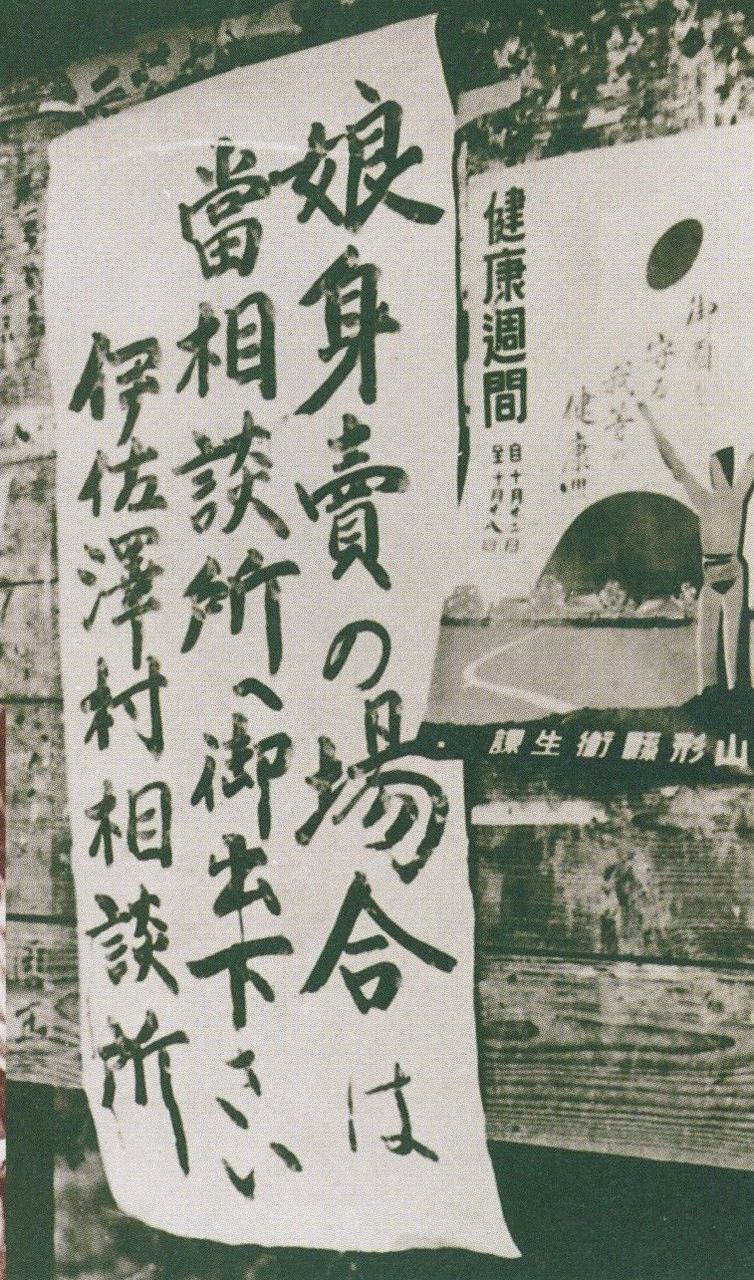 娘身賣の場合は
當相談所へ御出下さい
伊佐澤村相談所
健康週間
自十月十二日
至十月十八日
御國を
守る
我等の
健康
山形縣衛生課